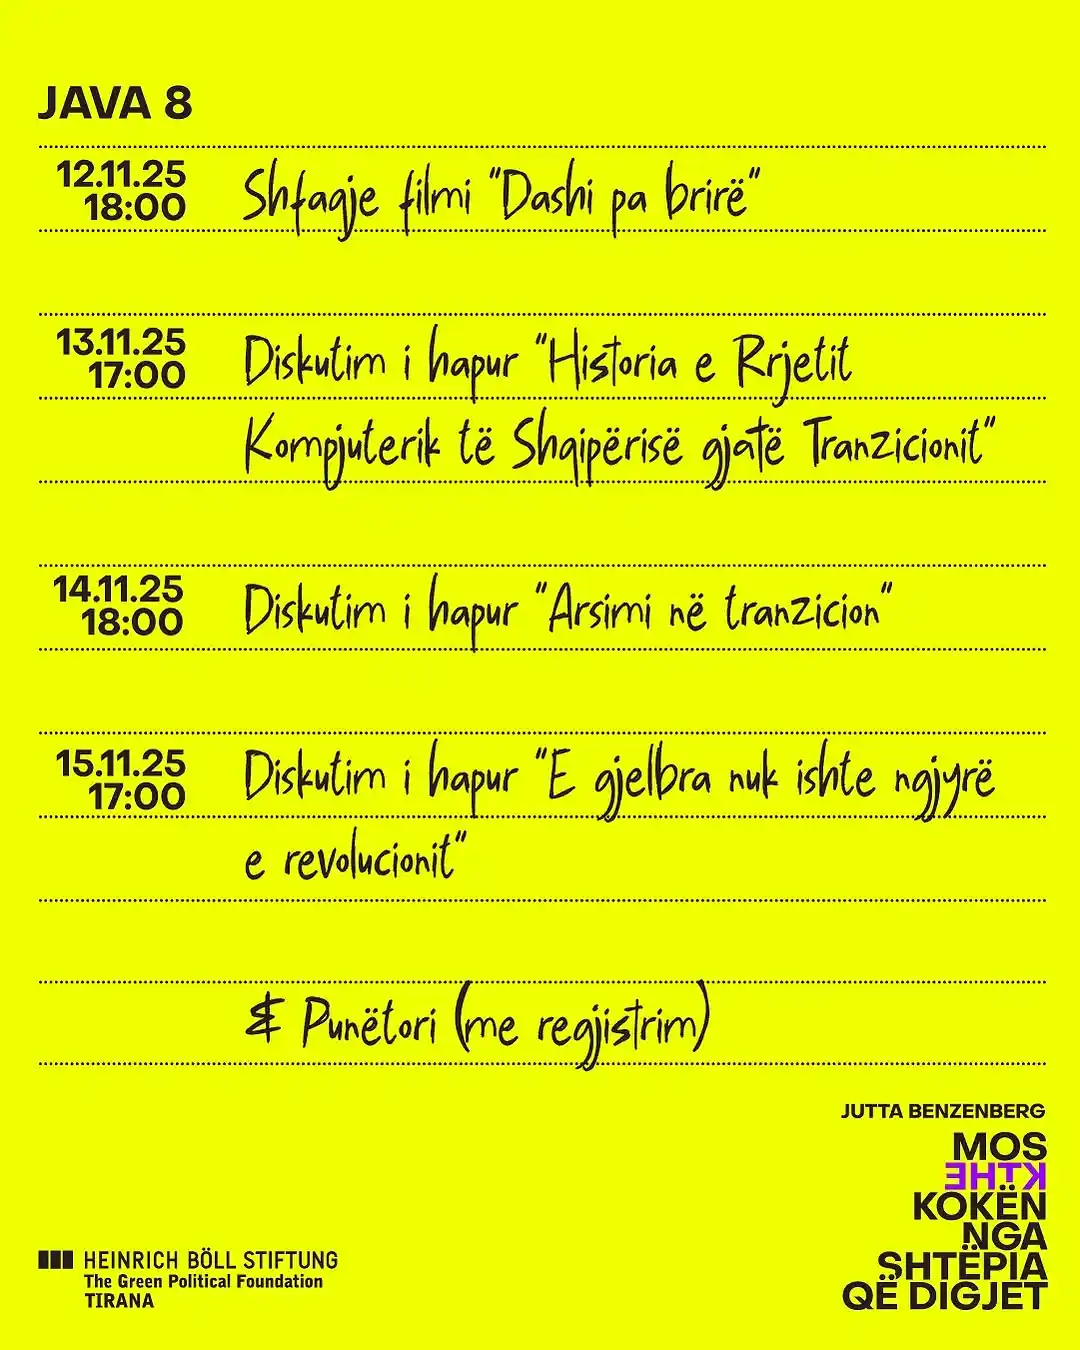 JAVA 8
12.11.25
18:00
Shfaqje filmi "Dashi pa brirë"
13.11.25
17:00
Diskutim i hapur "Historia e Rrjetit
Kompjuterik të Shqipërisë gjatë Tranzicionit"
14.11.25
18:00
Diskutim i hapur "Arsimi në tranzicion"
15.11.25
17:00
Diskutim i hapur "E gjelbra nuk ishte ngjyrë
e revolucionit"
& Punëtori (me regjistrim)
JUTTA BENZENBERG
MOS
KTHE
KOKËN
NGA
SHTËPIA
QË DIGJET
HEINRICH BÖLL STIFTUNG
The Green Political Foundation
TIRANA